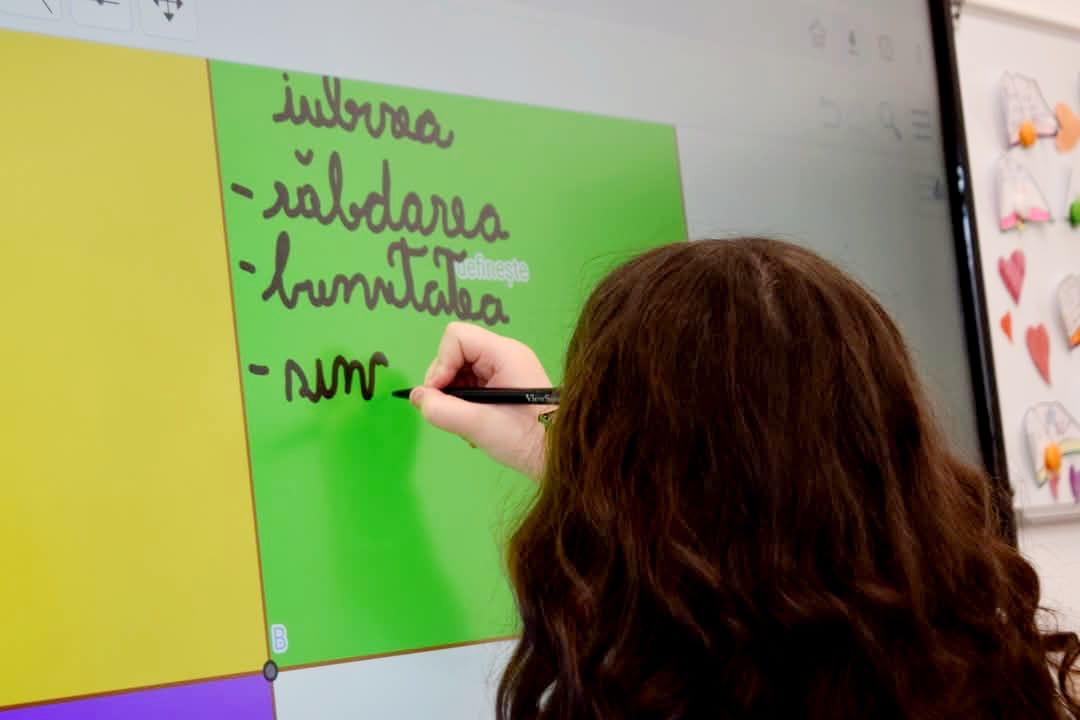 iubirea
- răbdarea
- bunătatea
definește
- sin
ViewSo
B